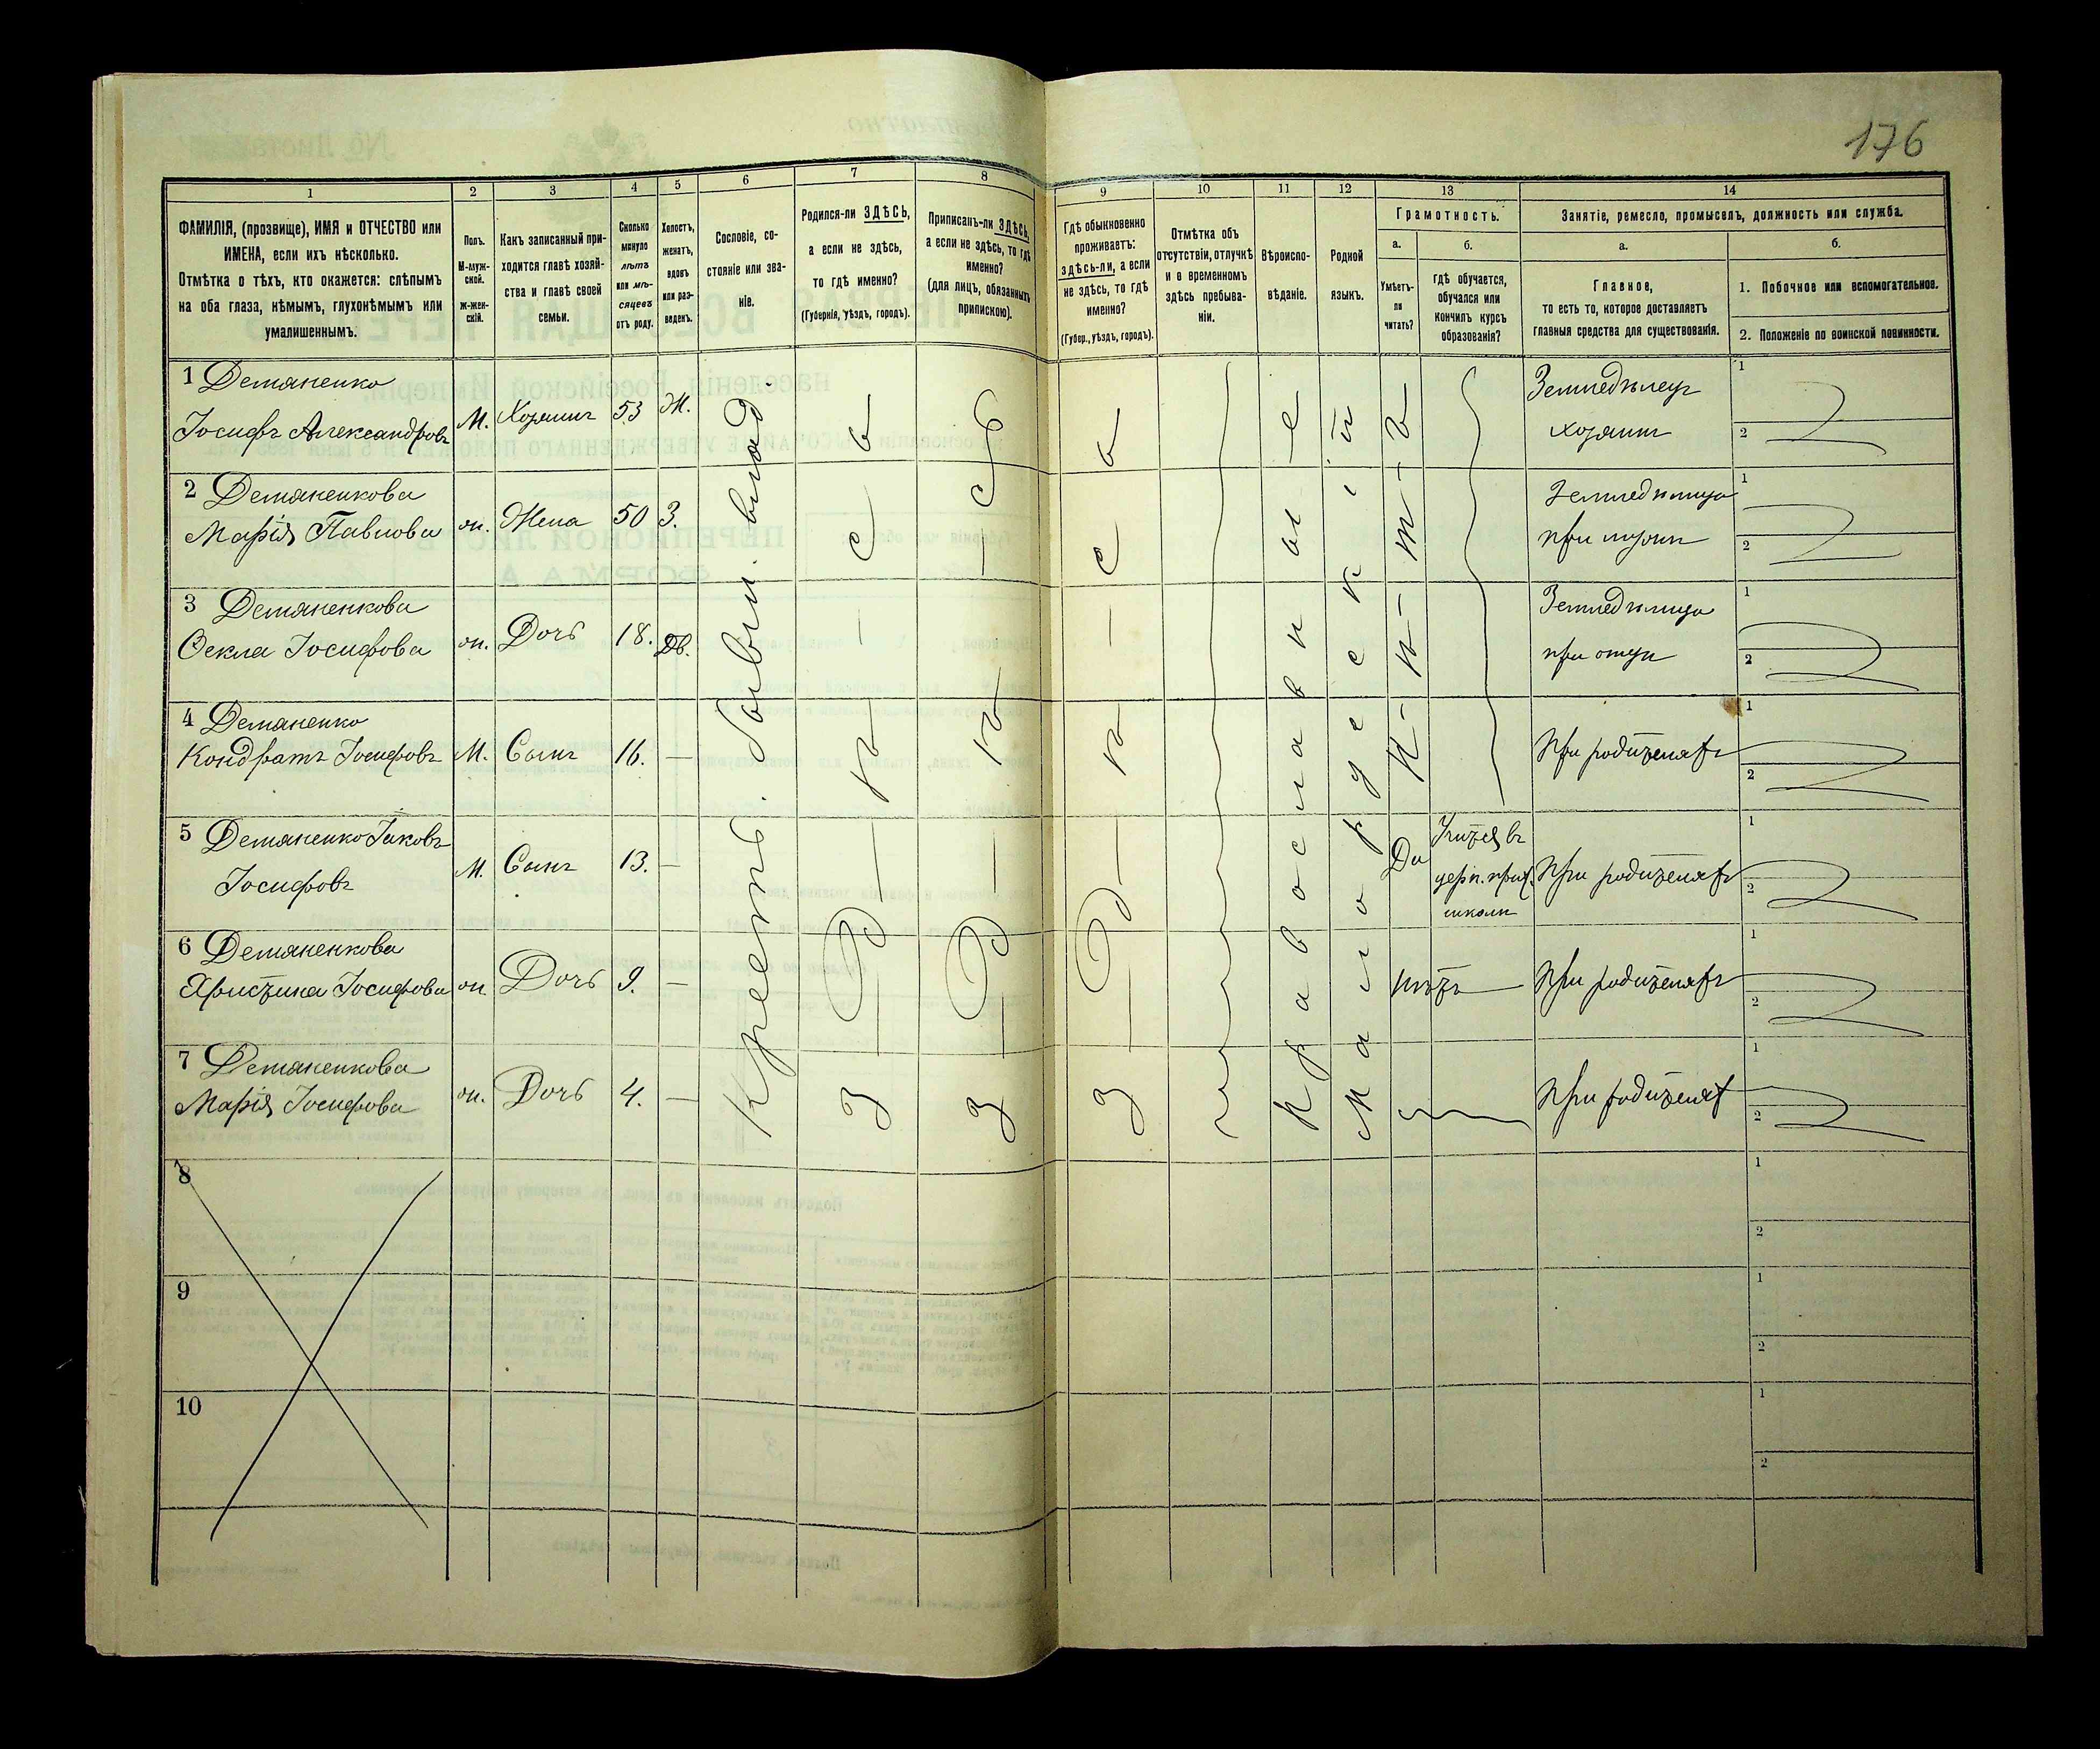 176
1 2 3 4 5 6 7 8 9 10 11 12 13 14
ФАМИЛІЯ, (прозвище), ИМЯ и ОТЧЕСТВО или
ИМЕНА, если ихъ нѣсколько.
Отмѣтка о тѣхъ, кто окажется: слѣпымъ
на оба глаза, нѣмымъ, глухонѣмымъ или
умалишеннымъ.
Полъ.
М-муж-
ской.
ж-жен-
скій.
Какъ записанный при-
ходится главѣ хозяй-
ства и главѣ своей
семьи.
Сколько
минуло
лѣтъ
или мѣ-
сяцевъ
отъ роду.
Холостъ,
женатъ,
вдовъ
или раз-
веденъ.
Сословіе, со-
стояніе или зва-
ніе.
Родился-ли ЗДѢСЬ,
а если не здѣсь,
то гдѣ именно?
(Губернія, уѣздъ, городъ).
Приписанъ-ли ЗДѢСЬ,
а если не здѣсь, то гдѣ
именно?
(для лицъ, обязанныхъ
припискою).
Гдѣ обыкновенно
проживаетъ:
здѣсь-ли, а если
не здѣсь, то гдѣ
именно?
(Губер., уѣздъ, городъ).
Отмѣтка объ
отсутствіи, отлучкѣ
и о временномъ
здѣсь пребыва-
ніи.
Вѣроиспо-
вѣданіе.
Родной
языкъ.
Грамотность.
а.
Умѣетъ-
ли
читать?
б.
Гдѣ обучается,
обучался или
кончилъ курсъ
образованія?
Занятіе, ремесло, промыселъ, должность или служба.
а.
Главное,
то есть то, которое доставляетъ
главныя средства для существованія.
б.
1. Побочное или вспомогательное.
2. Положеніе по воинской повинности.
1 Демяненко
Іосифъ Александровъ
М. Хозяинъ 53 Ж.
Земледѣлецъ
хозяинъ
1
2
2 Демяненкова
Марія Павлова
ж. Жена 50 З.
Земледѣлица
при мужѣ
1
2
3 Демяненкова
Ѳекла Іосифова
ж. Дочь 18. Дв.
Земледѣлица
при отцѣ
1
2
4 Демяненко
Кондратъ Іосифовъ
М. Сынъ 16. —
При родителяхъ
1
2
5 Демяненко Іаковъ
Іосифовъ
М. Сынъ 13. —
Да
Учится въ
церк. прих.
школѣ
При родителяхъ
1
2
6 Демяненкова
Христина Іосифова
ж. Дочь 9. —
нѣтъ
При родителяхъ
1
2
7 Демяненкова
Марія Іосифова
ж. Дочь 4. —
При родителях
1
2
Крестъ. бывш. влад.
З-д-ѣ-с-ь
З-д-ѣ-с-ь
З-д-ѣ-с-ь
Православное
Малорусскій
8
1
2
9
1
2
10
1
2